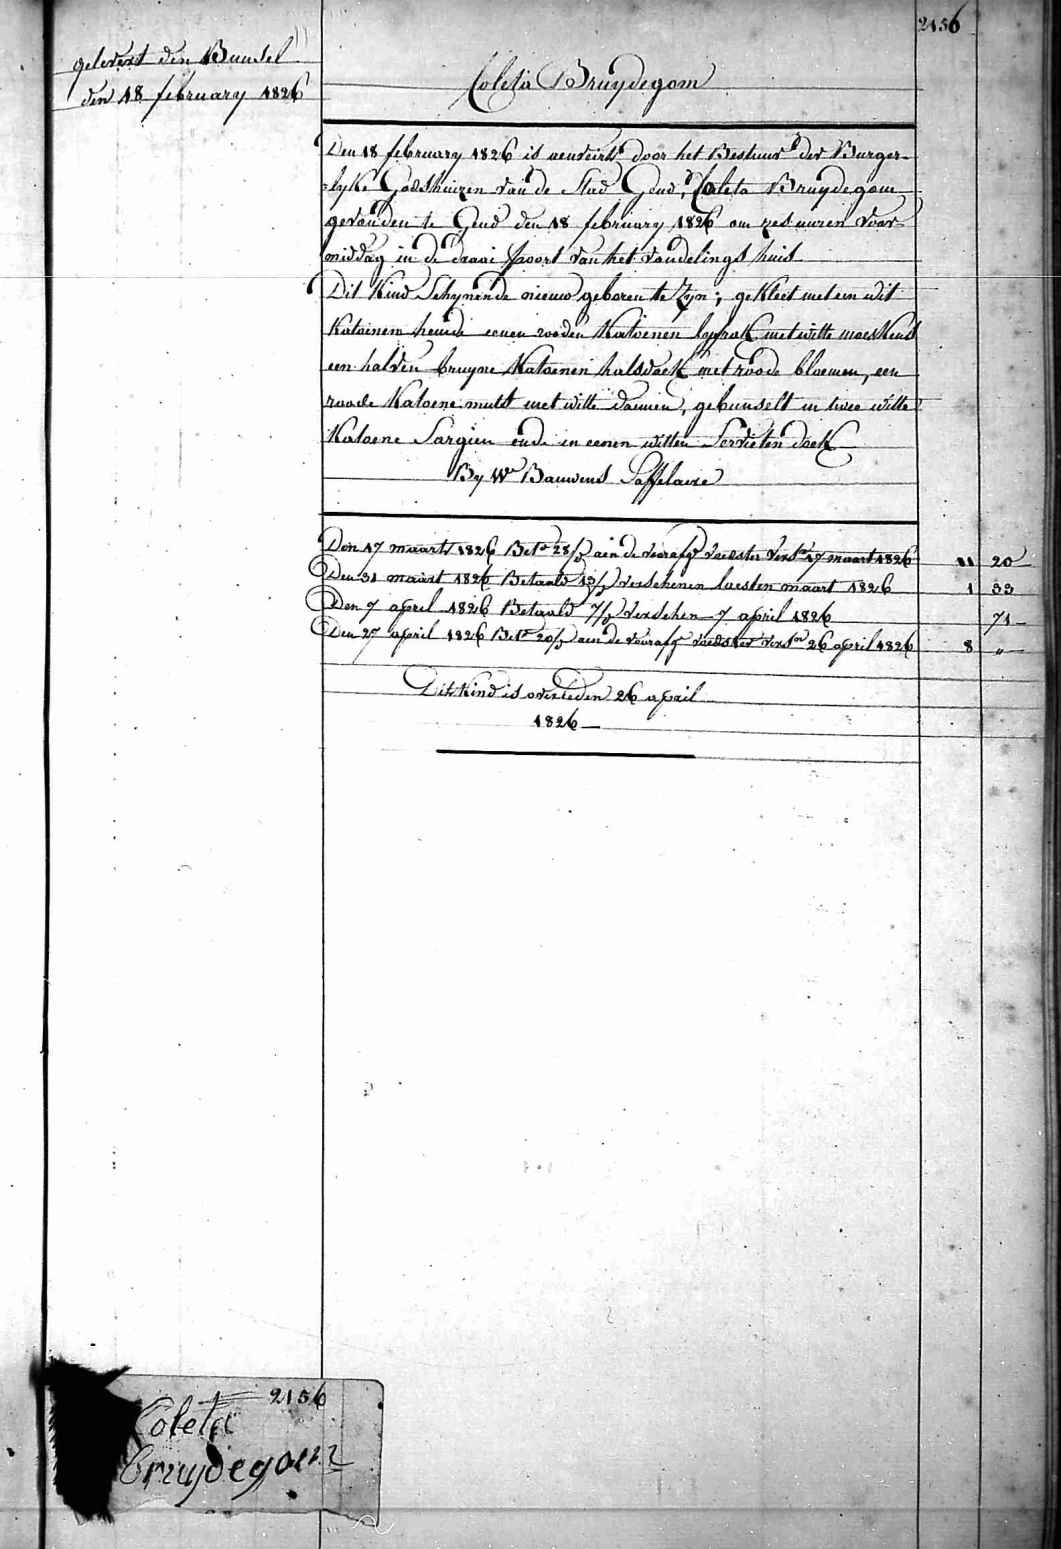 2156
gelevert den Bunsel
den 18 february 1826
Coleta Bruydegom
Den 18 february 1826 is aenveirt door het Bestuur der Burger-
lyke Godshuizen van de Stad Gend, Coleta Bruydegom
gevonden te Gend den 18 february 1826 om zes uuren voor-
middag in de draai poort van het vondelings huis
Dit Kind Schynende nieuw geboren te Zyn; gekleet met een wit
Katoinen hemde eenen rooden Katoenen lyfrok met witte moeskens
een halven bruyne Katoenen halsdoek met roode bloemen, een
roode Katoene muts met witte , gebunselt in twee witte
Katoene Sargien ende in eenen witten Servietendoek
By We Bauwens Saffelaire
Den 17 maart 1826 Bet. 28/ aen de vooraf voedster vers. 17 maart 1826 " 20
Den 31 maart 1826 Betaald 13/ verschenen laesten maart 1826 1 33
Den 7 april 1826 Betaald 7/ verschen 7 april 1826 71
Den 27 april 1826 Bet. 20/ aen de vooraf voedster vers. 26 april 1826 8 "
Dit Kind is overleden 26 april
1826
2156
Coleta
bruydegom